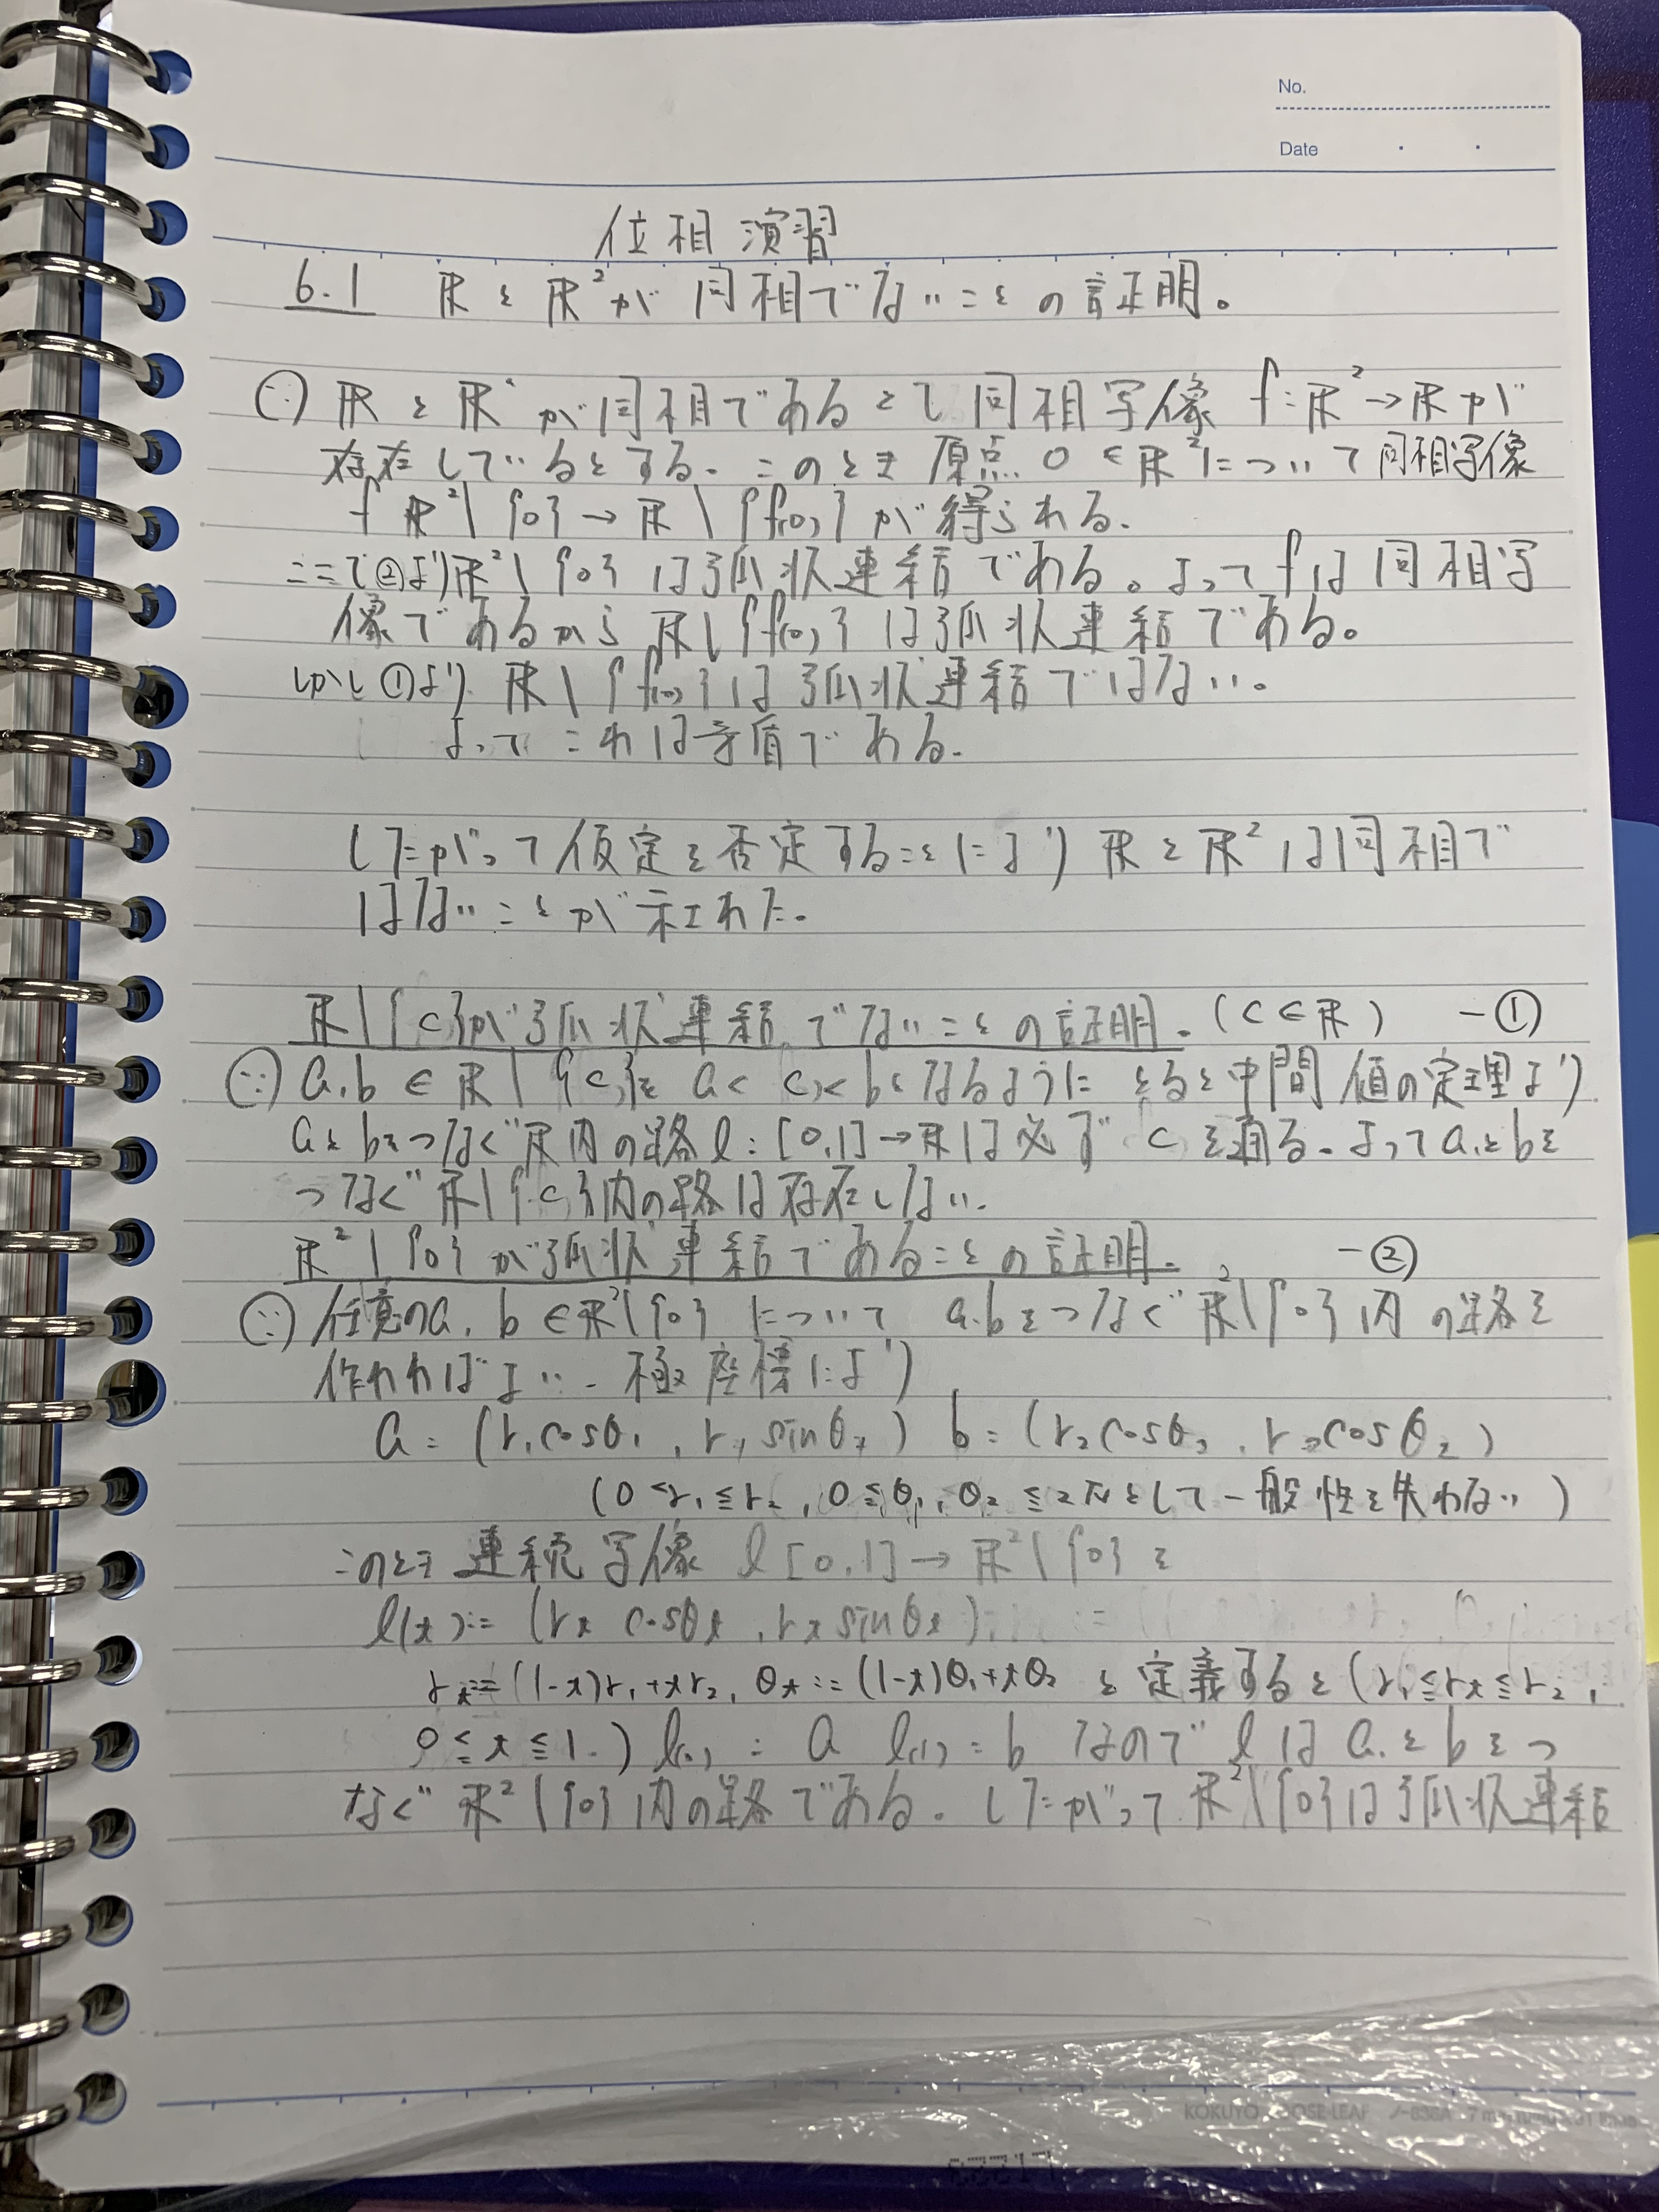 No.
Date
位相演習
6.1 ℝとℝ²が同相でないことの証明。
(∵) ℝとℝ²が同相であるとして同相写像 f:ℝ²→ℝが
存在しているとする。このとき原点 0∈ℝ²について同相写像
f ℝ²\{0}→ℝ\{f(0)}が得られる.
ここで②よりℝ²\{0}は弧状連結である。よってfは同相写
像であるからℝ\{f(0)}は弧状連結である。
しかし①より ℝ\{f(0)}は弧状連結ではない.
よってこれは矛盾である.
したがって仮定を否定することによりℝとℝ²は同相で
はないことが示された.
ℝ\{c}が弧状連結でないことの証明.(c∈ℝ) -①
(∵) a,b∈ℝ\{c}をa<c<bとなるようにとると中間値の定理より
aとbをつなぐℝ内の路l:[0,1]→ℝは必ずcを通る.よってaとbを
つなぐℝ\{c}内の路は存在しない.
ℝ²\{0}が弧状連結であることの証明. -②
(∵) 任意のa,b∈ℝ²\{0}について a,bをつなぐℝ²\{0}内の路を
作れればよい.極座標により
a=(r₁cosθ₁,r₁sinθ₁) b=(r₂cosθ₂,r₂cosθ₂)
(0<r₁≦r₂,0≦θ₁,θ₂≦2πとして一般性を失わない)
このとき連続写像 l[0,1]→ℝ²\{0}を
l(t):=(rt cosθt,rt sinθt)
rt:=(1-t)r₁+tr₂,θt:=(1-t)θ₁+tθ₂ と定義すると(r₁≦rt≦r₂,
0≦t≦1.)l(0)=a l(1)=b なのでlはaとbをつ
なぐℝ²\{0}内の路である.したがってℝ²\{0}は弧状連結